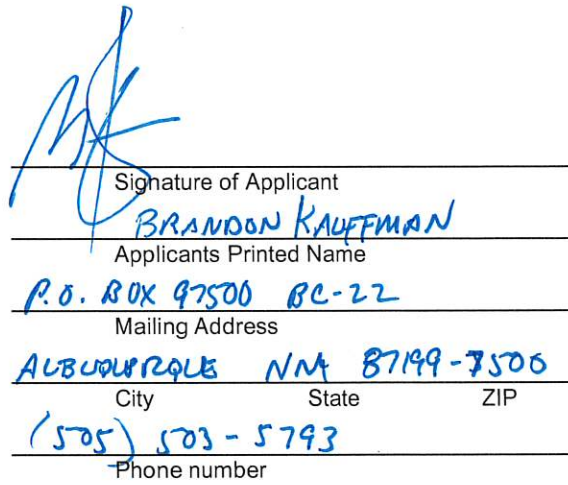 Signature of Applicant
BRANDON KAUFFMAN
Applicants Printed Name
P.O. BOX 97500 BC-22
Mailing Address
ALBUQUERQUE NM 87199-7500
City State ZIP
(505) 503-5793
Phone number